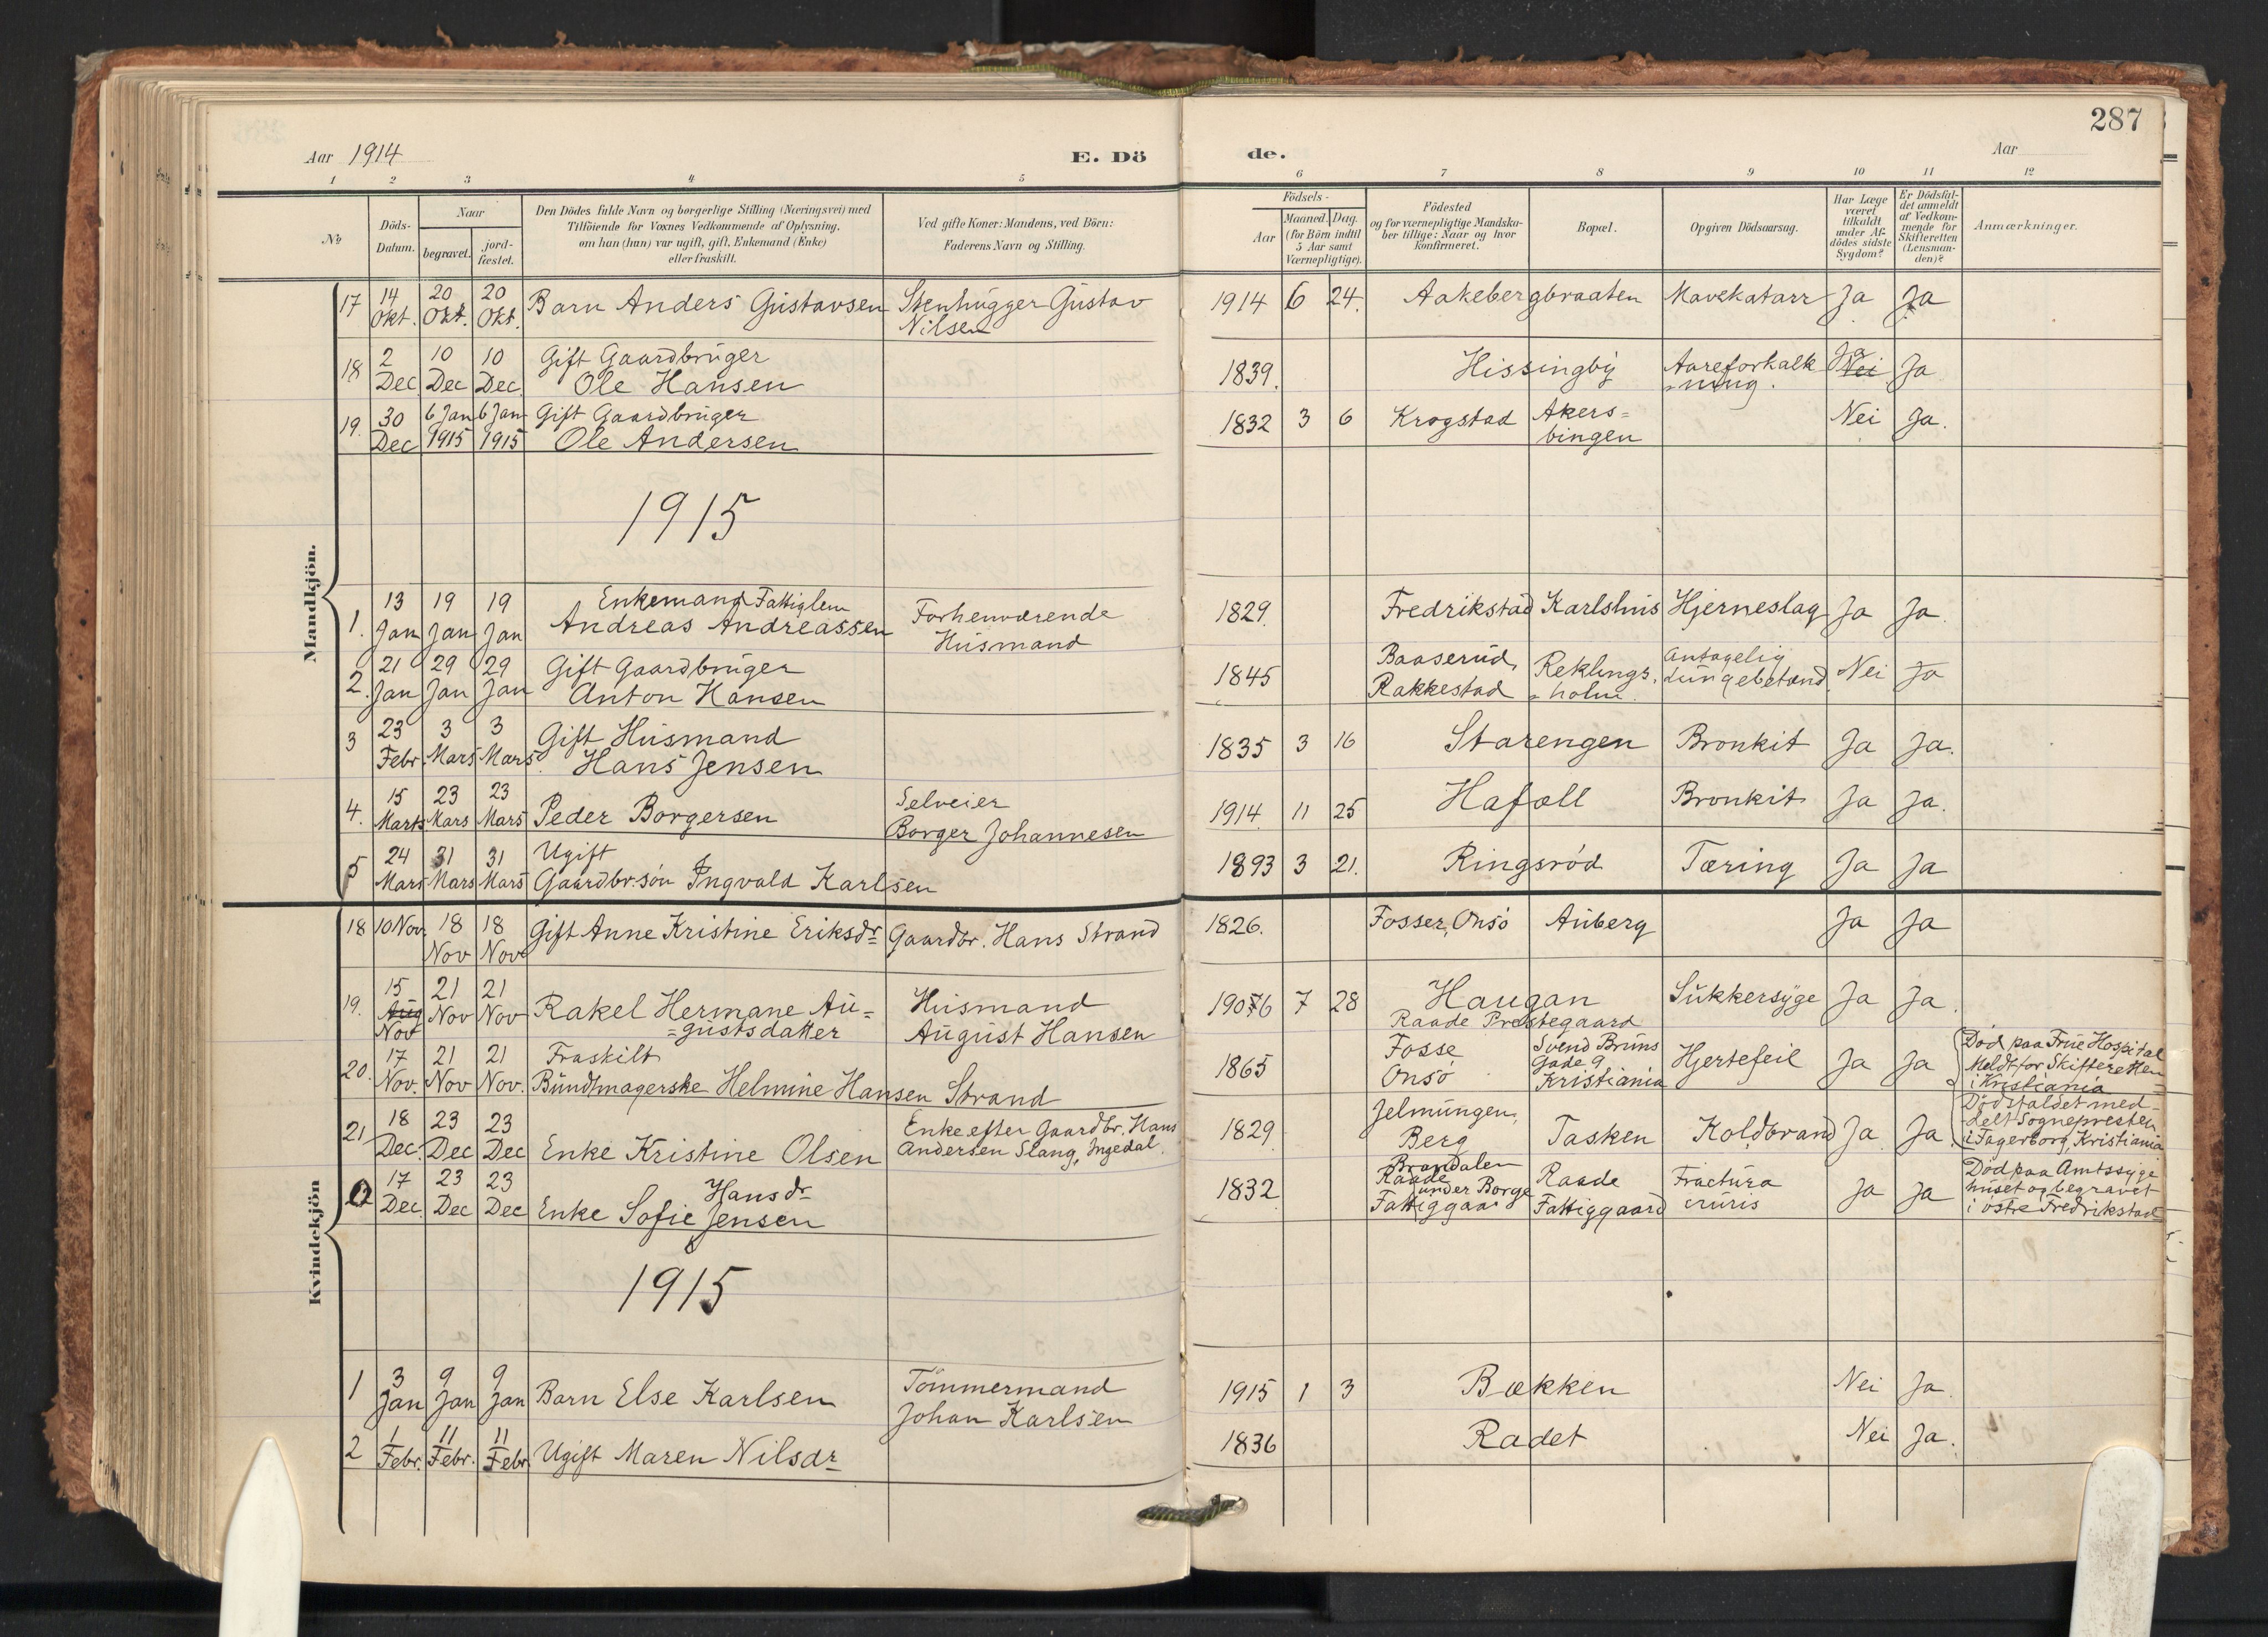 287
Aar 1914
E. Dö
de.
Aar
1 2 3 4 5 6 7 8 9 10 11 12
№
Döds-Datum.
Naar
begravet.
jord-fæstet.
Den Dödes fulde Navn og borgerlige Stilling (Næringsvei) med
Tilföiende for Voxnes Vedkommende af Oplysning,
om han (hun) var ugift, gift, Enkemand (Enke)
eller fraskilt.
Ved gifte Koner: Mandens, ved Börn:
Faderens Navn og Stilling.
Födsels-
Aar
Maaned. Dag.
(for Börn indtil
5 Aar samt
Værnepligtige).
Födested
og for værnepligtige Mandska-
ber tillige: Naar og hvor
konfirmeret.
Bopæl.
Opgiven Dödsaarsag.
Har Læge
været
tilkaldt
under Af-
dödes sidste
Sygdom?
Er Dödsfal-
det anmeldt
af Vedkom-
mende for
Skifteretten
(Lensman-
den)?
Anmærkninger.
Mandkjön.
17 14 Okt. 20 Okt. 20 Okt. Barn Anders Gustavsen Stenhugger Gustav Nilsen 1914 6 24. Aakebergbraaten Mavekatarr Ja Ja
18 2 Dec 10 Dec 10 Dec. Gift Gaardbruger Ole Hansen 1839. Hissingby Aareforkalkning. Ja Nei Ja
19. 30 Dec 6 Jan 1915 6 Jan 1915 Gift Gaardbruger Ole Andersen 1832 3 6 Krogstad Akers=bingen Nei Ja.
1915
1. 13 Jan 19 Jan 19 Jan Enkemand Fattiglem Andreas Andreassen Forhenværende Husmand 1829. Fredrikstad Karlshus Hjerneslag Ja Ja.
2. 21 Jan 29 Jan 29 Jan Gift Gaardbruger Anton Hansen 1845 Baaserud, Rakkestad Reklings=holm. Antagelig lungebetænd. Nei Ja
3 23 Febr. 3 Mars 3 Mars. Gift Husmand Hans Jensen 1835 3 16 Starengen Bronkit Ja Ja.
4. 15 Marts 23 Mars 23 Mars Peder Borgersen Selveier Borger Johannesen 1914 11 25 Hafall Bronkit Ja Ja.
5 24 Mars 31 Mars 31 Mars Ugift Gaardbr.søn Ingvald Karlsen 1893 3 21. Ringsrød Tæring Ja Ja
Kvindekjön
18 10 Nov. 18 Nov 18 Nov Gift Anne Kristine Eriksdr Gaardbr. Hans Strand 1826. Fosser, Onsö Auberg Ja Ja
19. 15 Aug Nov 21 Nov 21 Nov Rakel Hermane Au=gustsdatter Husmand August Hansen 1906 7 28 Haugan Raade Prestegaard Sukkersyge Ja Ja
20. 17 Nov. 21 Nov 21 Nov. Fraskilt Bundtmagerske Helmine Hansen Strand 1865 Fosse Onsö Svend Bruns Gade 9 Kristiania Hjertefeil Ja Ja Död paa Frue Hospital Meldt for Skifteretten i Kristiania
21. 18 Dec. 23 Dec 23 Dec Enke Kristine Olsen Enke efter Gaardbr. Hans Andersen Slang, Ingedal. 1829 Jelmungen, Berg Tasken Koldbrand Ja Ja Dödsfaldet med-delt Sognepresten i Fagerborg, Kristiania
22 17 Dec. 23 Dec 23 Dec Enke Sofie Hansdr Jensen 1832 Brandalen Raade under Borge Fattiggaard Raade Fattiggaard Fractura cruris Ja Ja Död paa Amtssyge huset og begravet i østre Fredrikstad
1915
1 3 Jan 9 Jan 9 Jan Barn Else Karlsen Tömmermand Johan Karlsen 1915 1 3 Bækken Nei Ja.
2 1 Febr. 11 Febr. 11 Febr. Ugift Maren Nilsdr 1836 Radet Nei Ja.